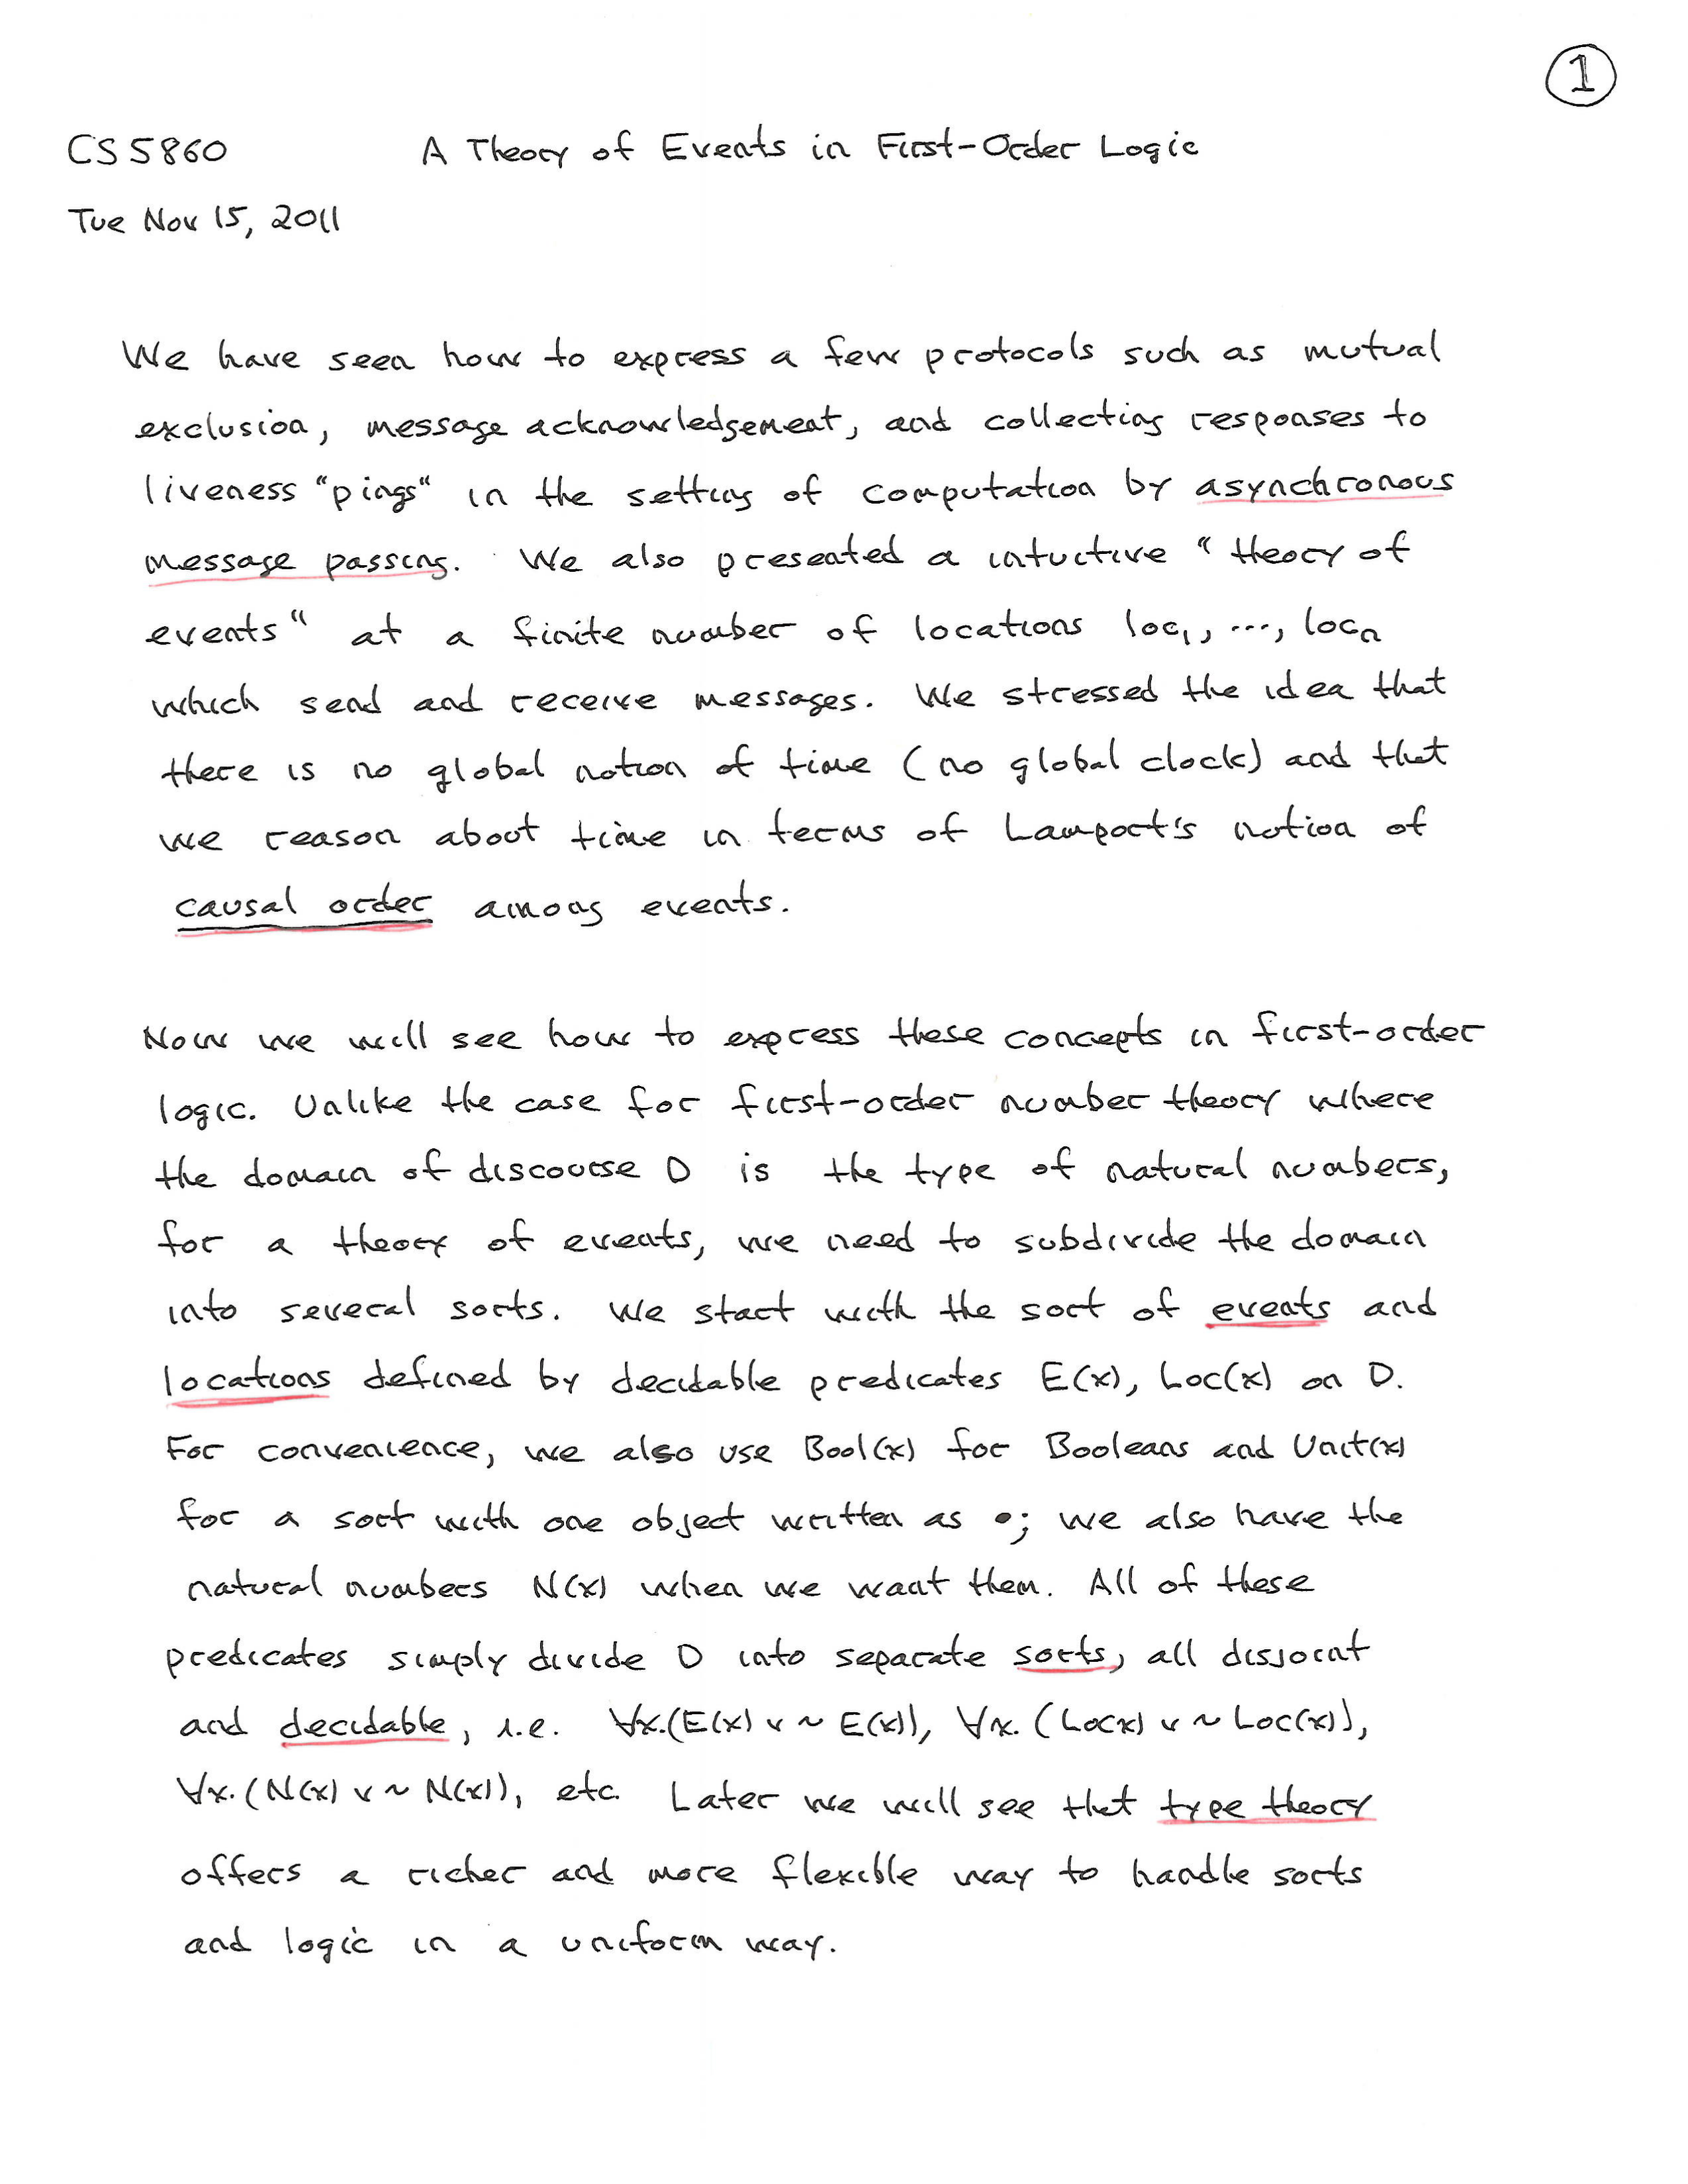 1
CS 5860 A Theory of Events in First-Order Logic
Tue Nov 15, 2011
We have seen how to express a few protocols such as mutual
exclusion, message acknowledgement, and collecting responses to
liveness "pings" in the setting of computation by asynchronous
message passing. We also presented a intuitive "theory of
events" at a finite number of locations loc₁, ..., locₙ
which send and receive messages. We stressed the idea that
there is no global notion of time (no global clock) and that
we reason about time in terms of Lamport's notion of
causal order among events.
Now we will see how to express these concepts in first-order
logic. Unlike the case for first-order number theory where
the domain of discourse D is the type of natural numbers,
for a theory of events, we need to subdivide the domain
into several sorts. We start with the sort of events and
locations defined by decidable predicates E(x), Loc(x) on D.
For convenience, we also use Bool(x) for Booleans and Unit(x)
for a sort with one object written as •; we also have the
natural numbers N(x) when we want them. All of these
predicates simply divide D into separate sorts, all disjoint
and decidable, i.e. ∀x.(E(x) v ~ E(x)), ∀x. (Loc(x) v ~ Loc(x)),
∀x. (N(x) v ~ N(x)), etc. Later we will see that type theory
offers a richer and more flexible way to handle sorts
and logic in a uniform way.